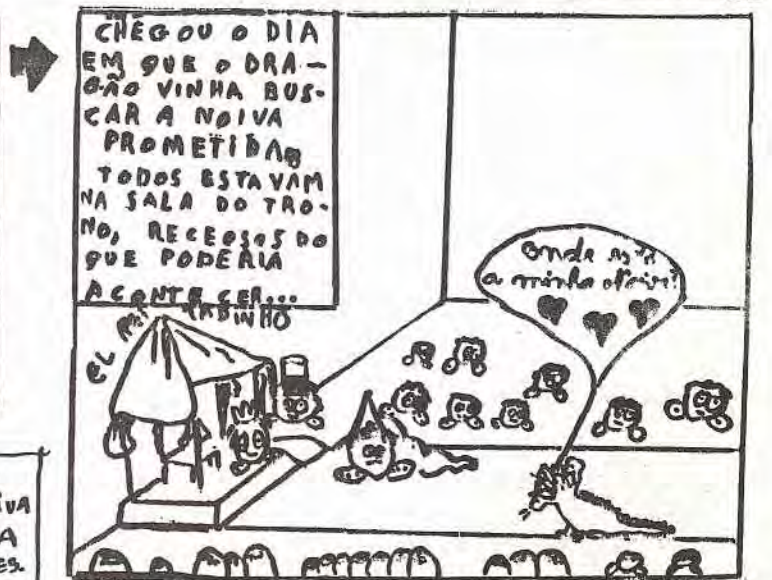 CHEGOU O DIA
EM QUE O DRA-
GÃO VINHA BUS-
CAR A NOIVA
PROMETIDA
TODOS ESTAVAM
NA SALA DO TRO-
NO, RECEOSOS DO
QUE PODERIA
ACONTECER...
EL
onde está
a minha noiva?
IVA
A
ES.